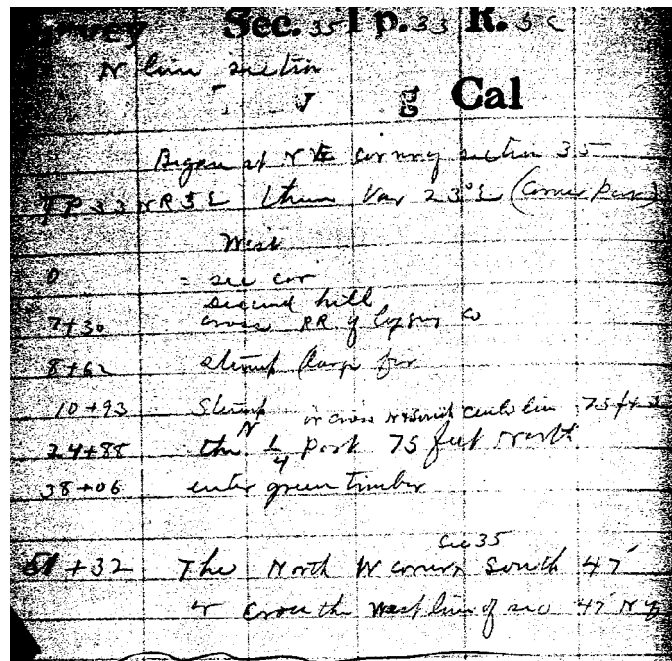 Survey Sec. 35 Tp. 33 R. 5 E
N line section
g Cal
Began at N E Cor of section 35
TP 33 N R 5 E thence Var 23° E (Corner Post)
West
0 = sec cor
second hill
7+30 cross RR of Logging Co
8+62 stump large fir
10+93 Stump or cross N & South center line 75 ft
24+88 the N 1/4 post 75 feet North
38+06 enter green timber
Sec 35
51+32 The North W corner South 47'
or cross the West line of sec 47' N of